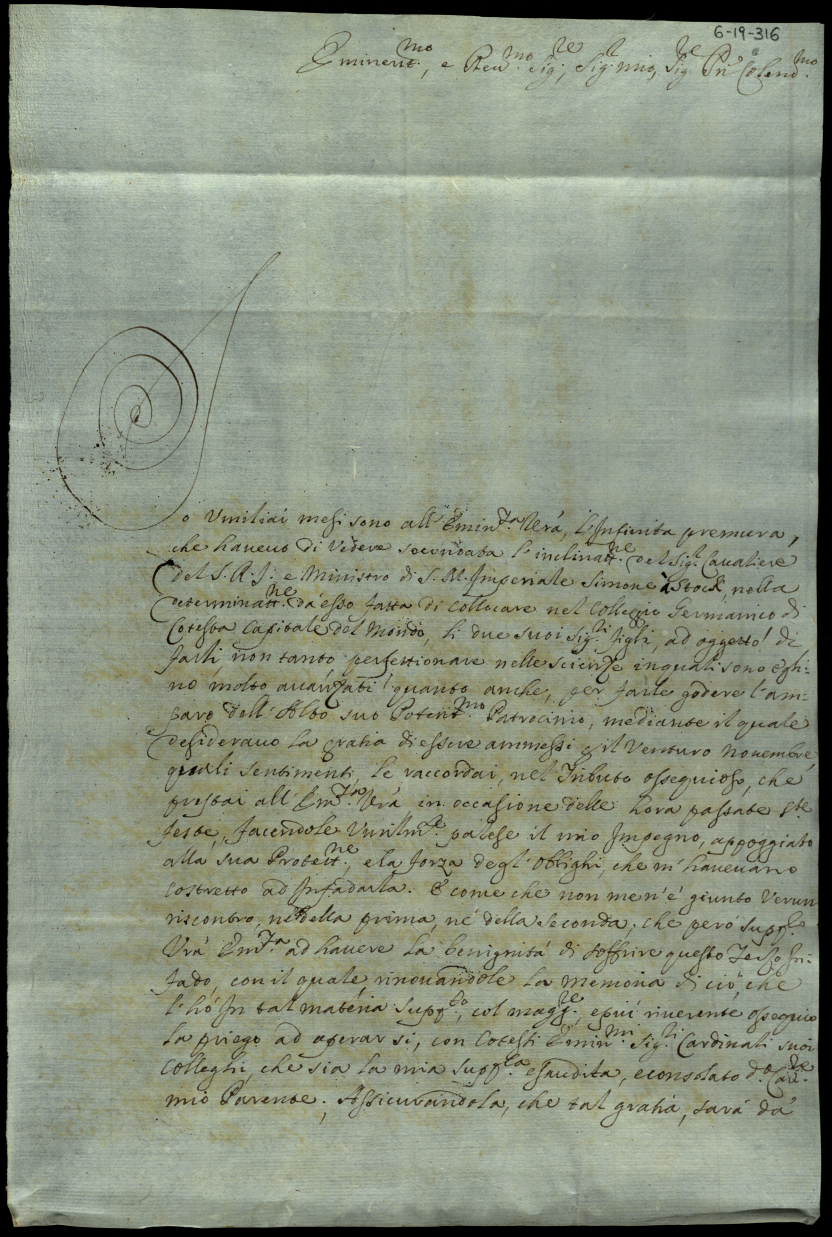 6-19-316
Eminent.mo, e Reu.mo Sig.re, Sig.r mio, Sig.re Pr̃on Colend.mo
o Umiliai mesi sono all' Emin.za Vr̃a, l'Infinita premura,
che haueuo di Vedere secondata l'inclinatt.ne del Sig.r Caualiere
del S. R. I. e Ministro di S. M. Imperiale Simone Stock, nella
determinatt.ne da esso fatta di collocare nel Colleggio Germanico di
Cotesta Capitale del Mondo, li due suoi Sig.ri figli, ad oggetto di
farli, non tanto perfettionare nelle scienze in quali sono Egli=
no molto auanzati, quanto anche, per farle godere l'am=
paro dell'Alto suo Potent.mo Patrocinio, mediante il quale
desiderauo la gratia di essere ammessi p il Venturo Nouembre,
quali sentimenti, le raccordai, nel Tributo ossequioso, che
prestai all' Em.za Vr̃a in occasione delle hora passate S.te
feste, facendole Umilm.te palese il mio Impegno, appoggiato
alla sua Protett.ne, e la forza degl'Oblighi, che m'haueuano
costretto ad Infadarla. E come che non men'è giunto Verun
riscontro, nè della prima, nè della seconda, che però supp.co
Vr̃a Em.za ad hauere la benignità di soffrire questo Terzo In=
fado, con il quale, rinouandole la memoria di ciò, che
l'hò In tal materia supp.to, col magg.re, e più riuerente ossequio
La priego ad oprarsi, con Cotesti Emin.mi Sig.ri Cardinali suoi
Colleghi, che sia la mia supp.ca esaudita, e consolato d.o Cau.re
mio Parente; Assicurandola, che tal gratia, sarà da